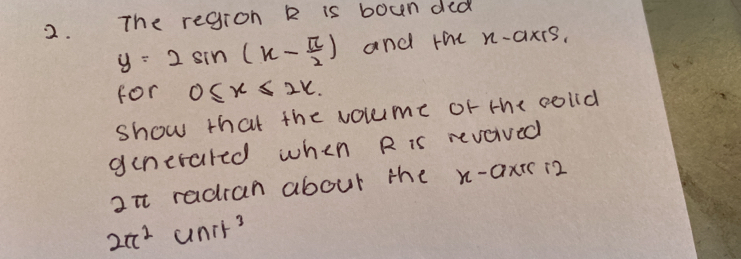 2. The region R is bounded
y = 2 sin (x - π/2) and the x-axis,
for 0 ≤ x ≤ 2π.
show that the volume of the solid
generated when R is revolved
2π radian about the x-axis is
2π² unit³